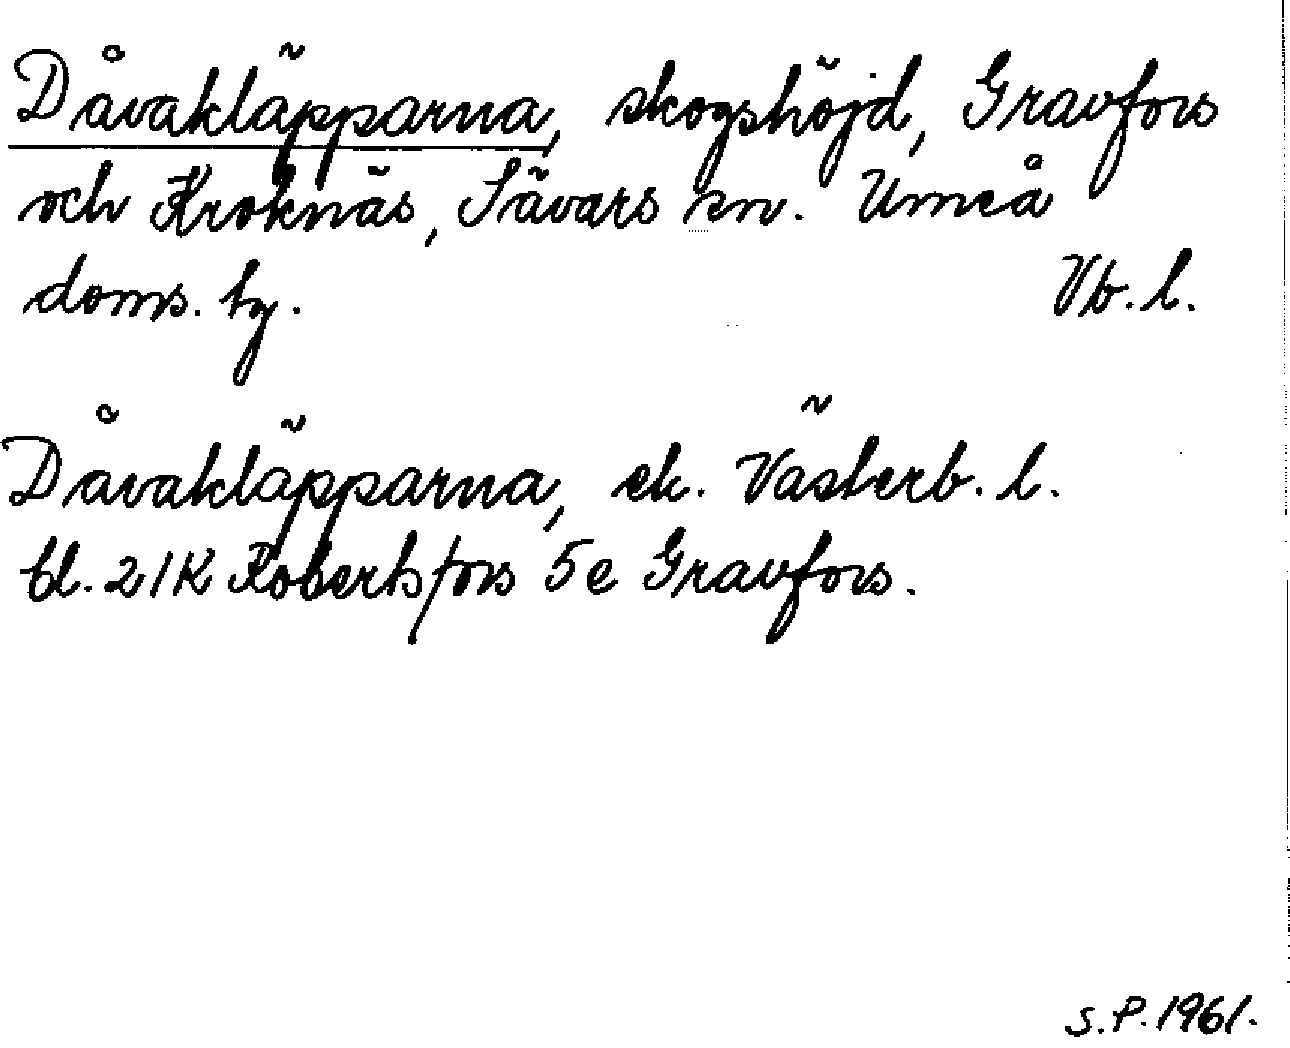 Dåvakläpparna, skogshöjd, Gravfors
och Kroknäs, Sävars sn. Umeå
doms. tg. Vb. l.
Dåvakläpparna, ek. Västerb. l.
bl. 21K Robertsfors 5e Gravfors.
S.P. 1961.